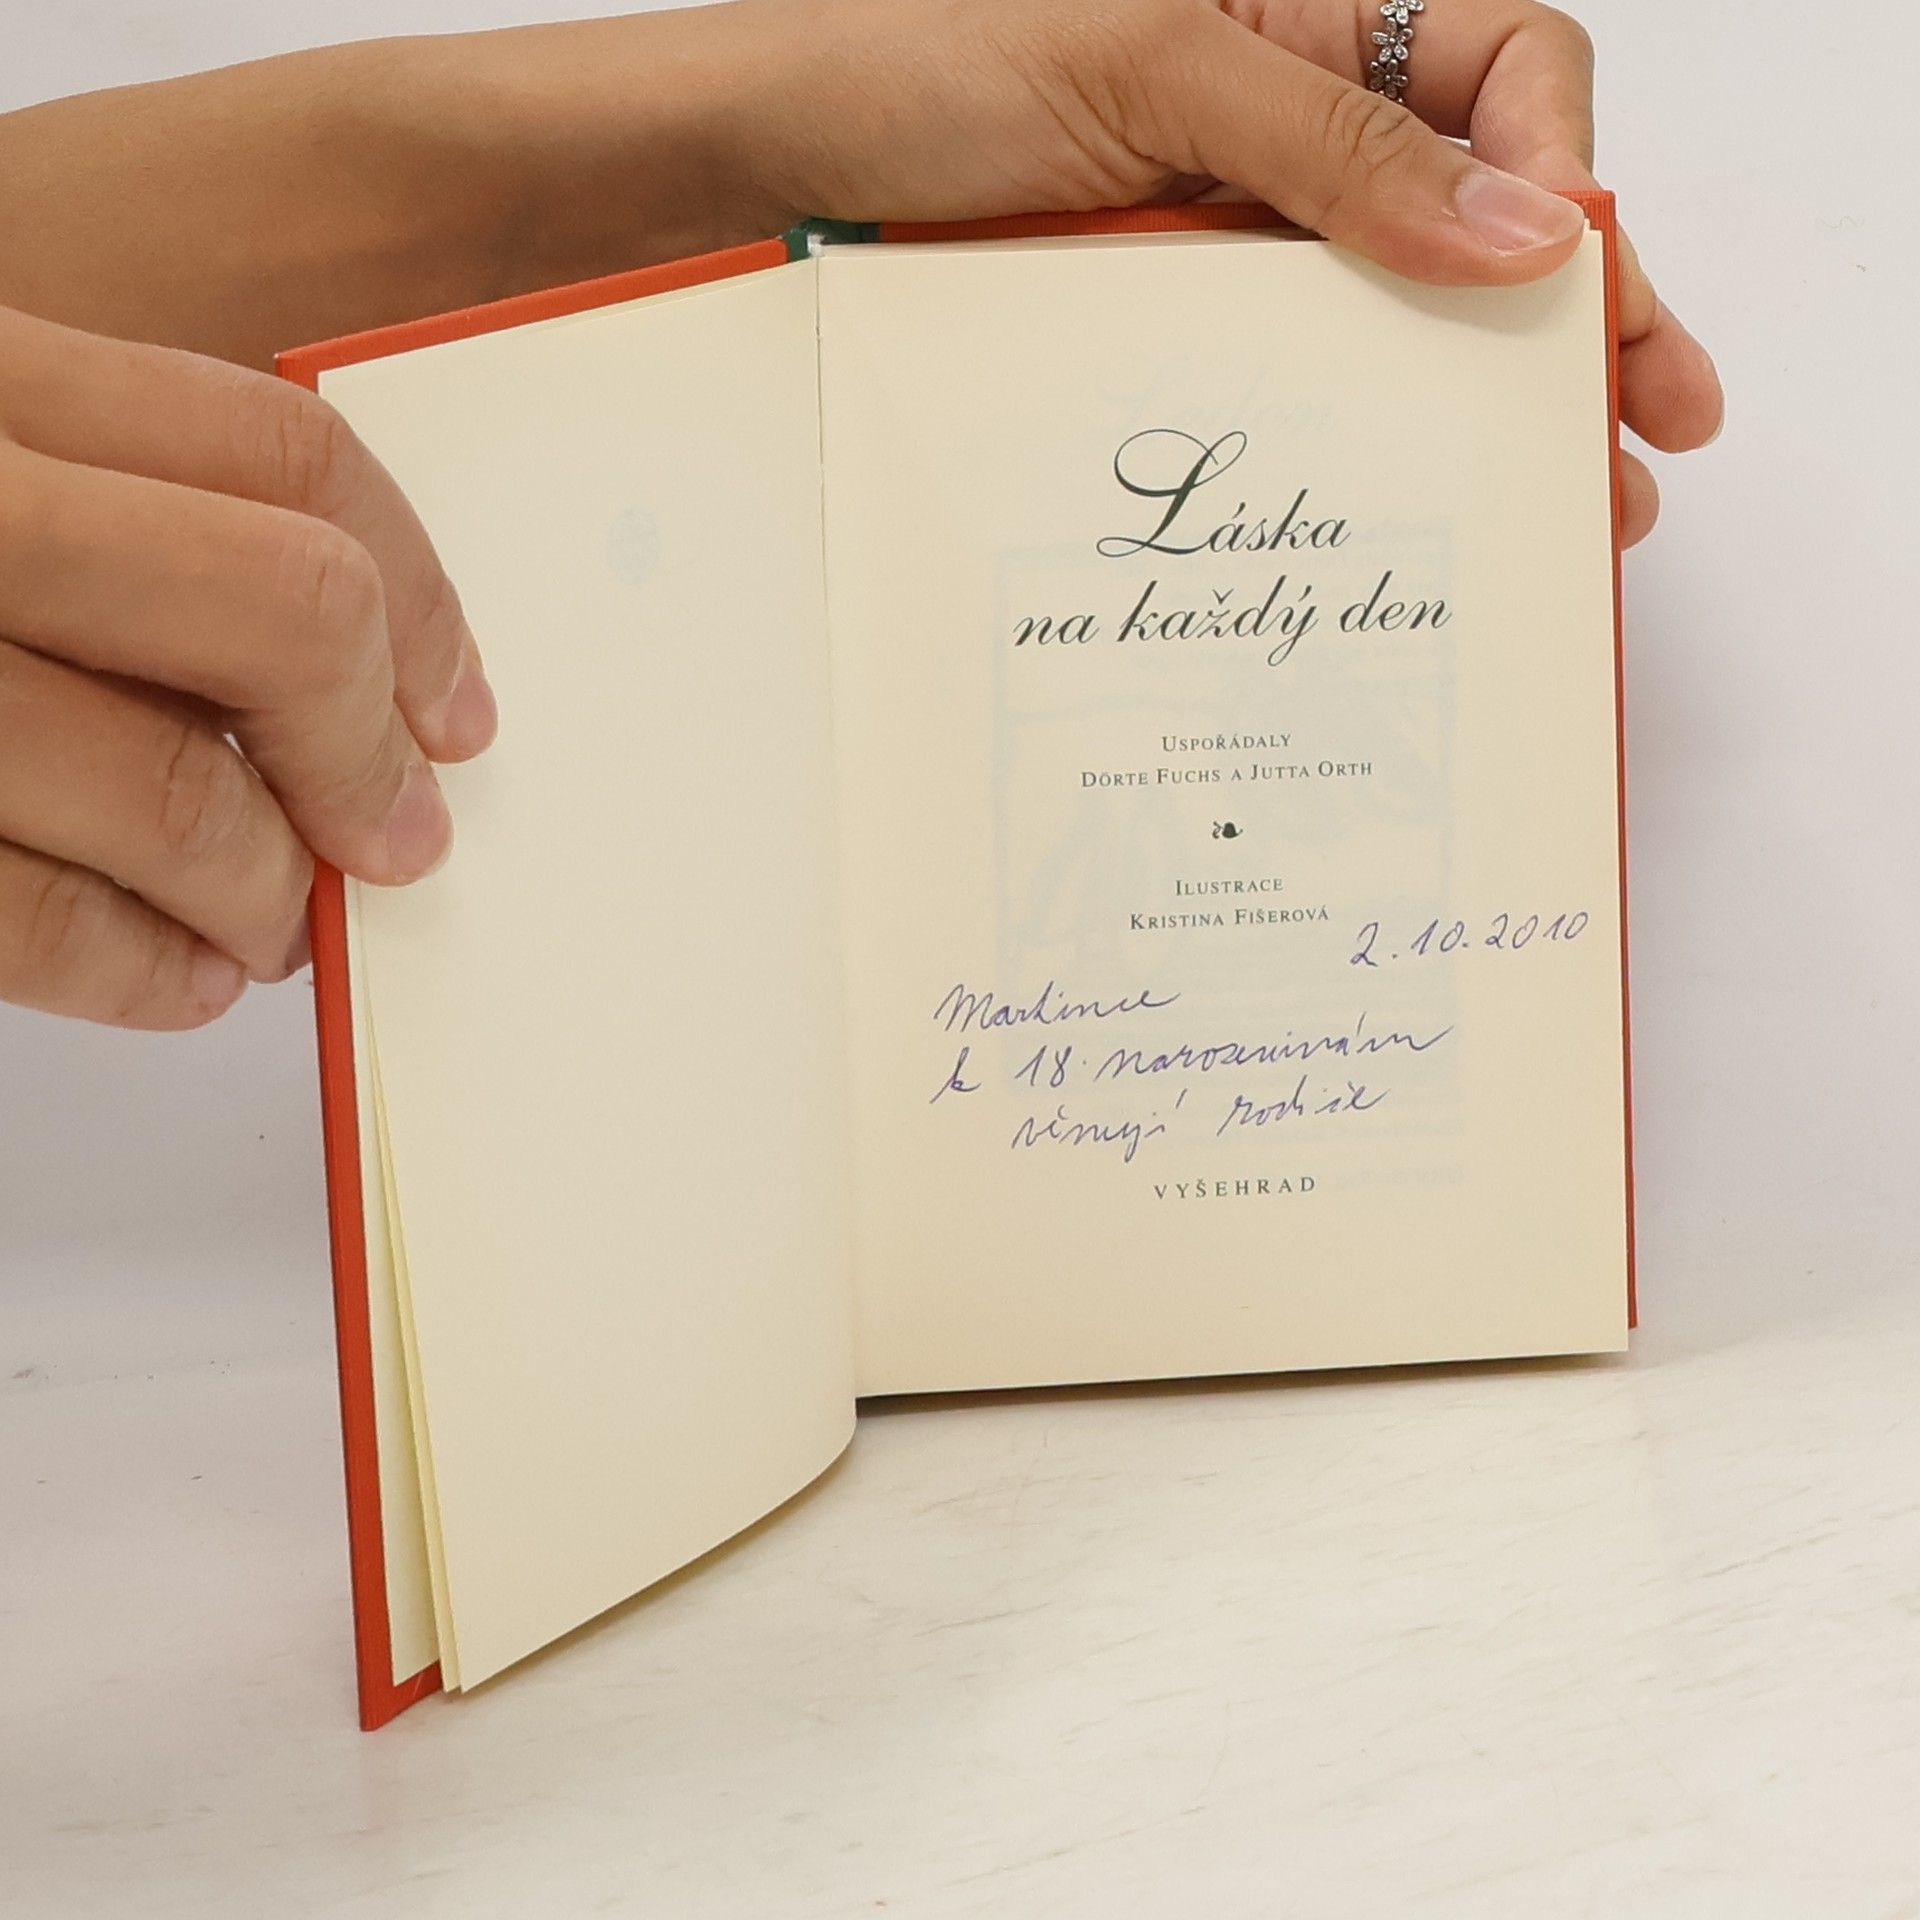 Láska
na každý den
Uspořádaly
Dörte Fuchs a Jutta Orth
Ilustrace
Kristina Fišerová
2. 10. 2010
Martince
k 18. narozeninám
věnují rodiče
VYŠEHRAD